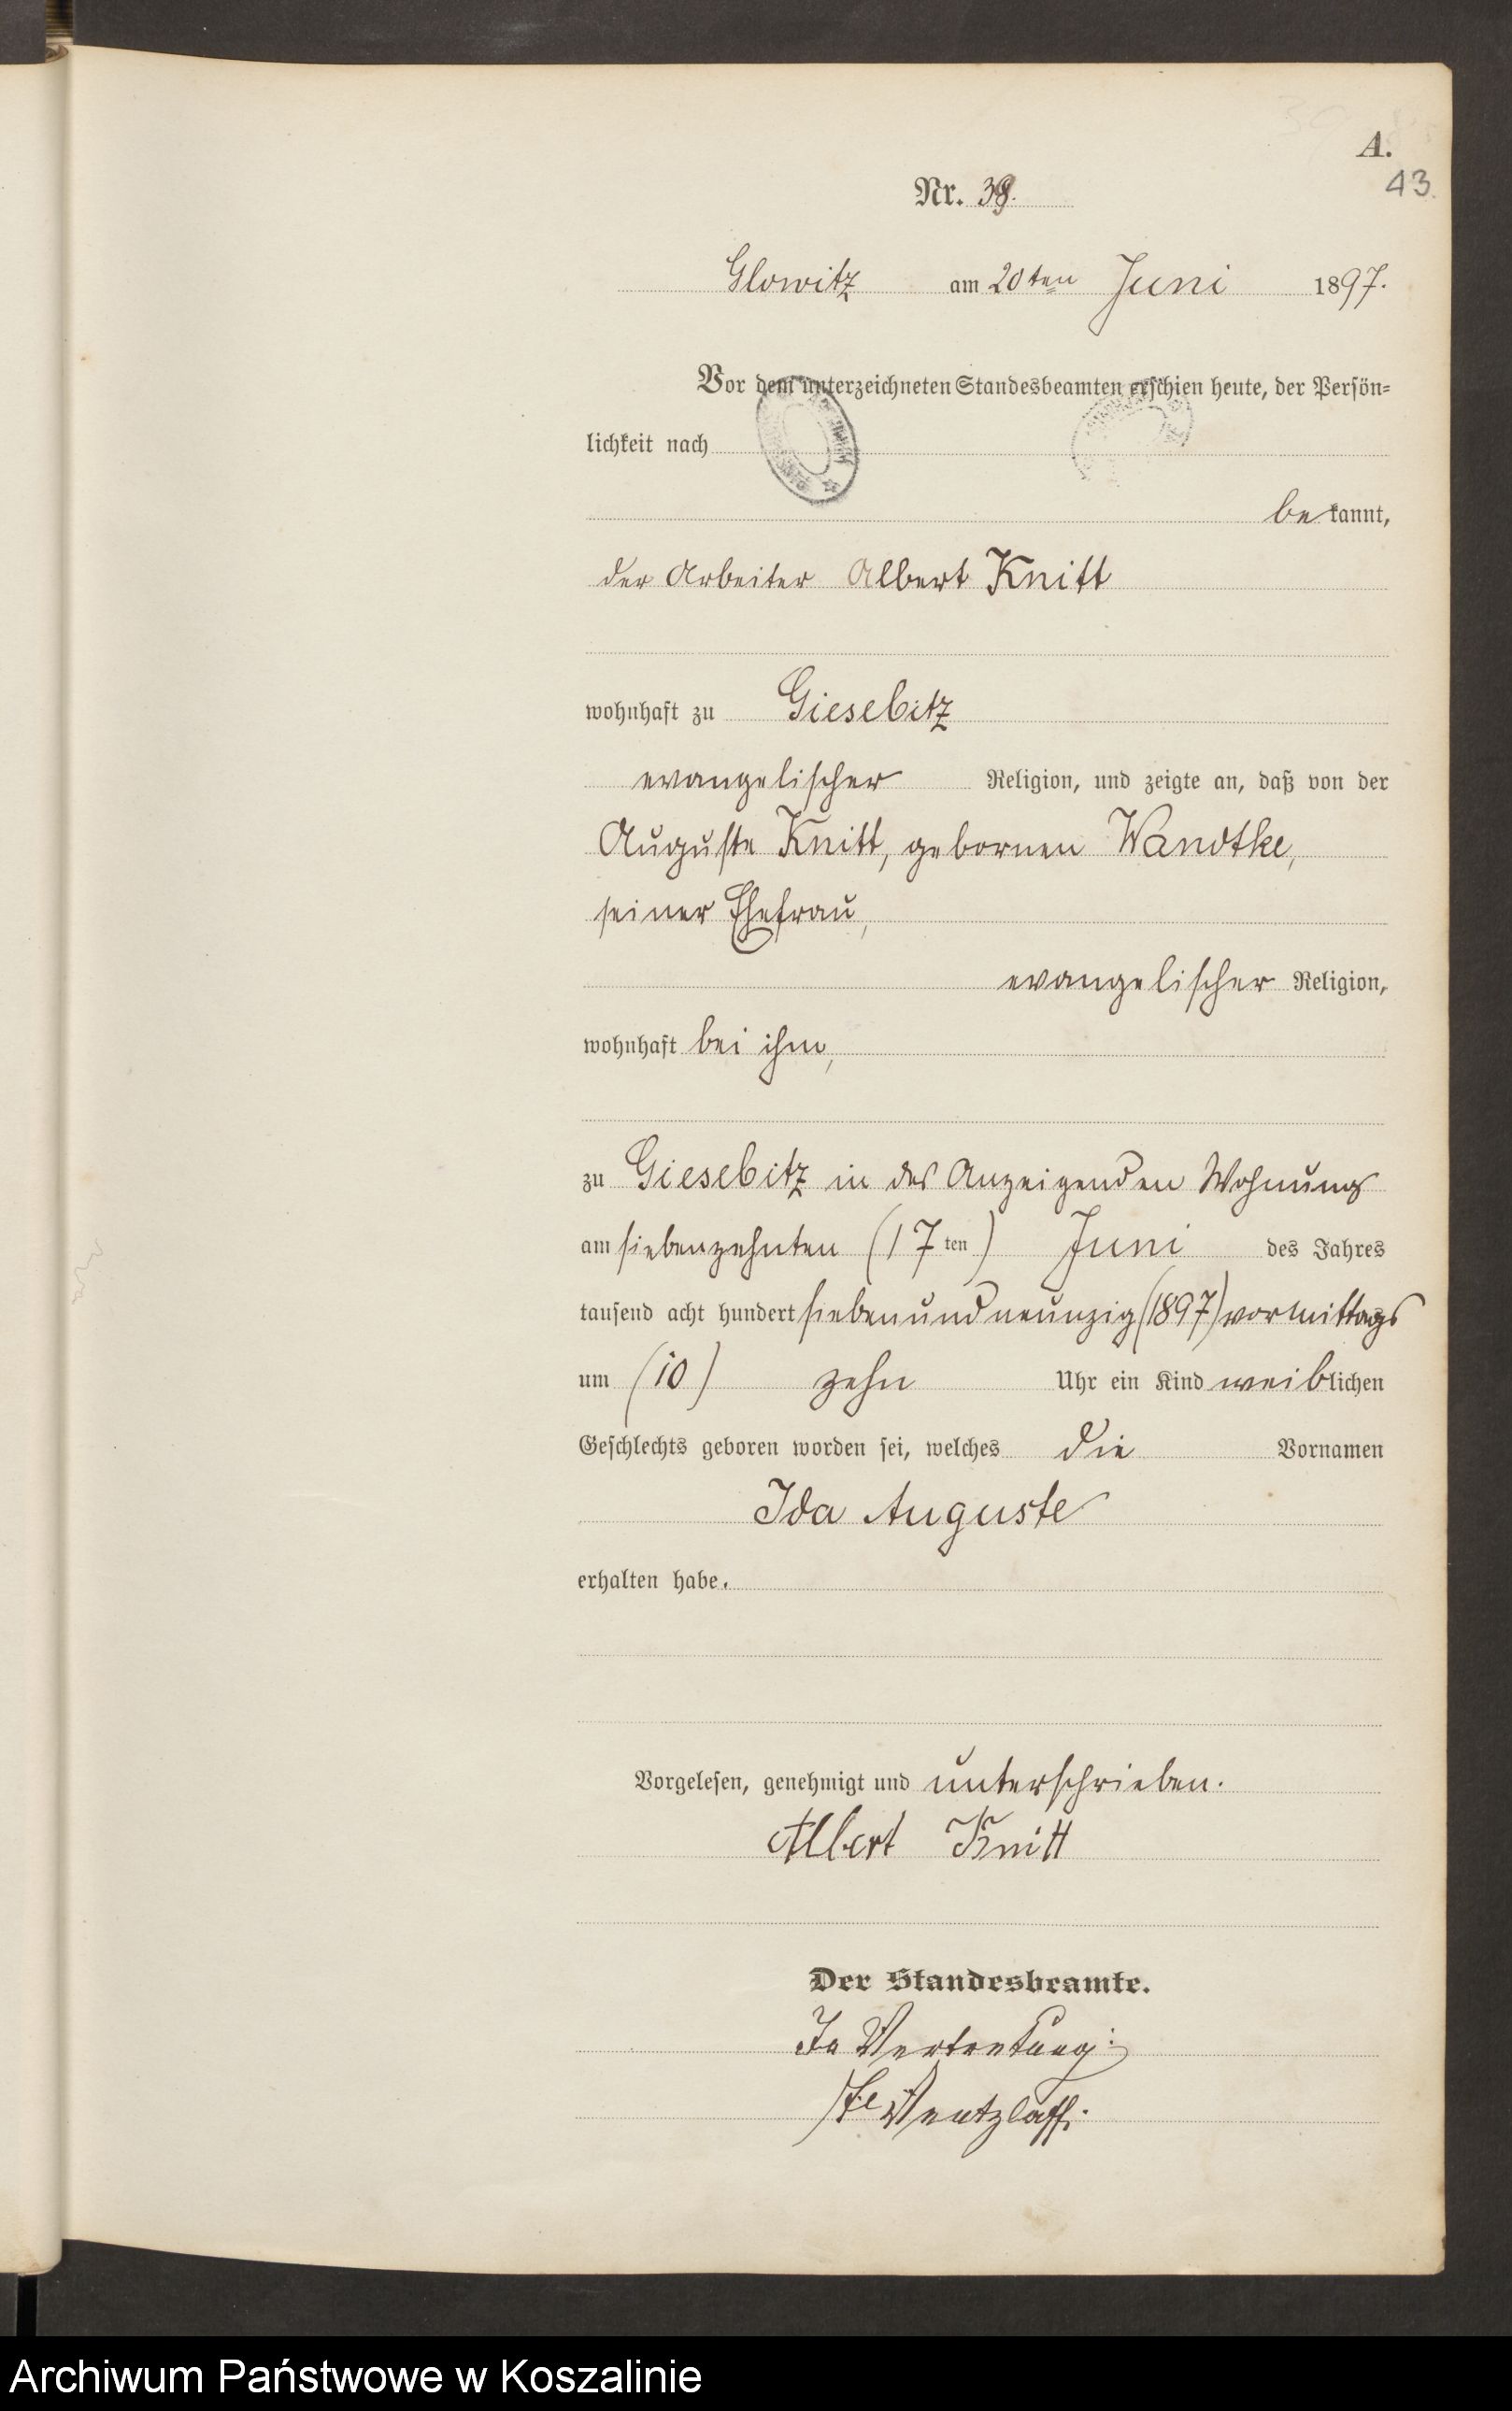 A.
43.
Nr. 39.
Glowitz am 20ten Juni 1897.
Vor dem unterzeichneten Standesbeamten erschien heute, der Persön-
lichkeit nach
bekannt,
der Arbeiter Albert Knitt
wohnhaft zu Giesebitz
evangelischer Religion, und zeigte an, daß von der
Auguste Knitt, gebornen Wandtke,
seiner Ehefrau,
evangelischer Religion,
wohnhaft bei ihm,
zu Giesebitz in des Anzeigenden Wohnung
am siebenzehnten (17ten) Juni des Jahres
tausend acht hundert siebenundneunzig (1897) vormittags
um (10) zehn Uhr ein Kind weiblichen
Geschlechts geboren worden sei, welches die Vornamen
Ida Auguste
erhalten habe.
Vorgelesen, genehmigt und unterschrieben.
Albert Knitt
Der Standesbeamte.
In Vertretung:
Wentzlaff.
Archiwum Państwowe w Koszalinie